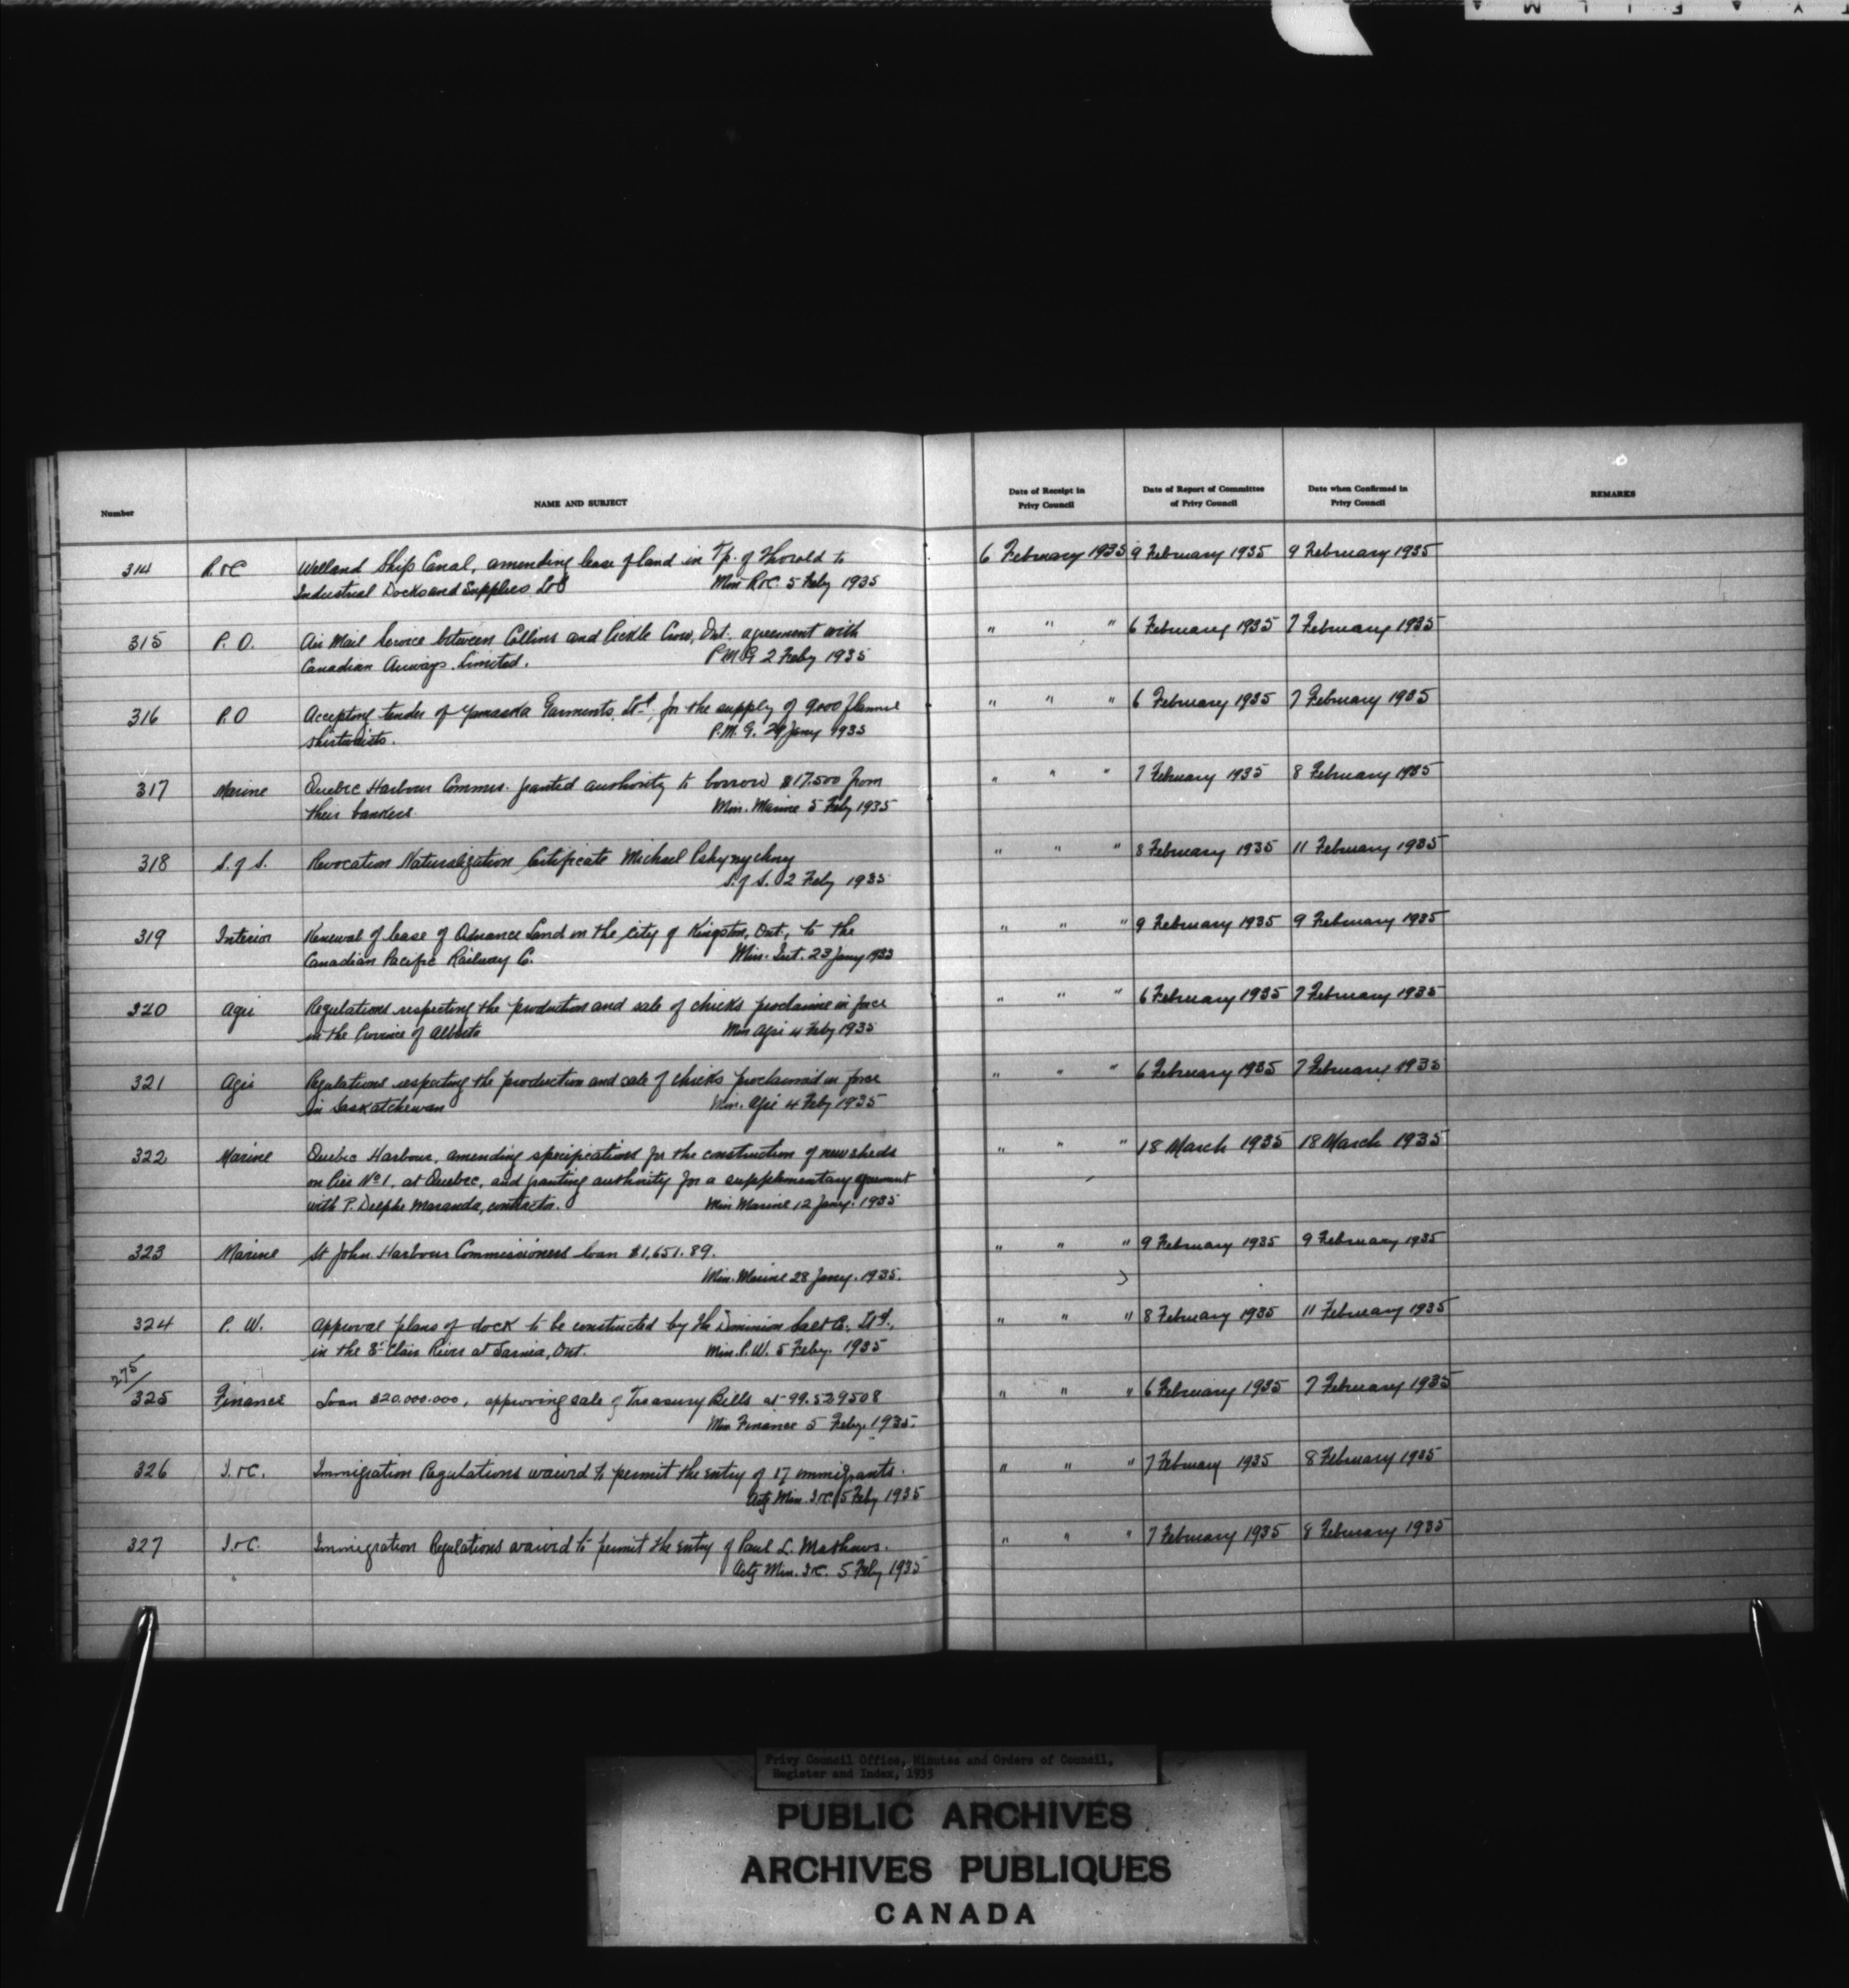 Number NAME AND SUBJECT Date of Receipt in Privy Council Date of Report of Committee of Privy Council Date when Confirmed in Privy Council REMARKS
314 R. & C Welland Ship Canal, amending lease of land in Tp. of Thorold to 6 February 1935 9 February 1935 9 February 1935
Industrial Docks and Supplies Ltd Min R & C. 5 Feby 1935
315 P. O. Air Mail Service between Collins and Pickle Crow, Ont. agreement with " " " 6 February 1935 7 February 1935
Canadian Airways Limited. P.M.G 2 Feby 1935
316 P.O Accepting tender of Yamaska Garments, Ltd, for the supply of 9,000 flannel " " " 6 February 1935 7 February 1935
shirtwaists. P.M.G. 29 Jany 1935
317 Marine Quebec Harbour Commrs. granted authority to borrow $17.500 from " " " 7 February 1935 8 February 1935
their bankers. Min. Marine 5 Feby 1935
318 S. of S. Revocation Naturalization Certificate Michael " " " 8 February 1935 11 February 1935
S. of S. 2 Feby 1935
319 Interior Renewal of lease of Ordnance Land in the city of Kingston, Ont, to the " " " 9 February 1935 9 February 1935
Canadian Pacific Railway Co. Min. Int. 23 Jany 1935
320 Agri Regulations respecting the production and sale of chicks proclaime in force " " " 6 February 1935 7 February 1935
in the Province of Alberta Min Agri 4 Feby 1935
321 Agri Regulations respecting the production and sale of chicks proclaimed in force " " " 6 February 1935 7 February 1935
in Saskatchewan Min. Agri 4 Feby 1935
322 Marine Quebec Harbour, amending specifications for the construction of new sheds " " " 18 March 1935 18 March 1935
on Pier No 1, at Quebec, and granting authority for a supplementary agreement
with P. Delphis Maranda, contractor. Min Marine 12 Jany. 1935
323 Marine St John Harbour Commissioners loan $1,651.89. " " " 9 February 1935 9 February 1935
Min. Marine 28 Jany. 1935.
324 P. W. Approval plans of dock to be constructed by the Dominion Salt Co., Ltd., " " " 8 February 1935 11 February 1935
in the St Clair River at Sarnia, Ont. Min. P. W. 5 Feby. 1935
275/
325 Finance Loan $20.000.000, approving sale of Treasury Bills at 99.529508 " " " 6 February 1935 7 February 1935
Min Finance 5 Feby. 1935.
326 I. & C. Immigration Regulations waived to permit the entry of 17 immigrants. " " " 7 February 1935 8 February 1935
Actg Min. I & C. 5 Feby 1935
327 I. & C. Immigration Regulations waived to permit the entry of Paul L. Mathews. " " " 7 February 1935 8 February 1935
Actg Min. I & C. 5 Feby 1935
Privy Council Office, Minutes and Orders of Council,
Register and Index, 1935
PUBLIC ARCHIVES
ARCHIVES PUBLIQUES
CANADA